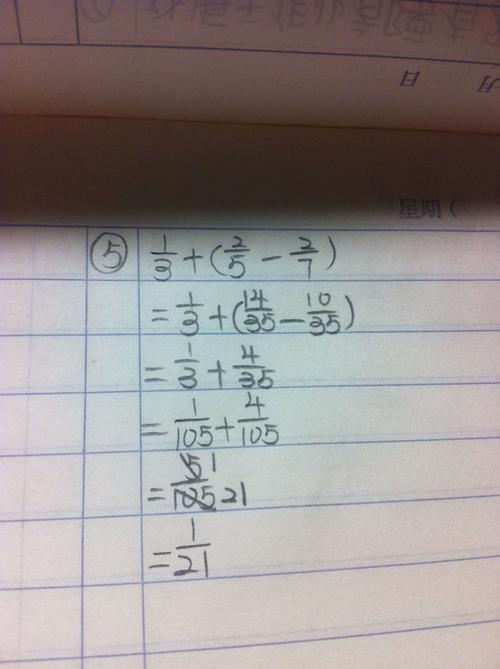 日 月
星期(
⑤ 1/3 + (2/5 - 2/7)
= 1/3 + (14/35 - 10/35)
= 1/3 + 4/35
= 1/105 + 4/105
= 5/105 1/21
= 1/21